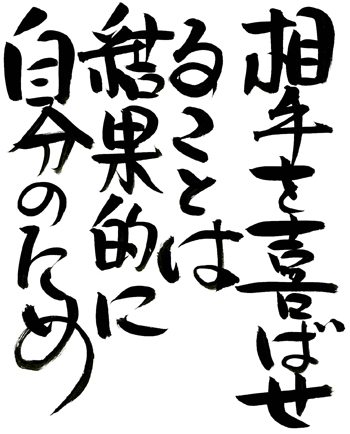 相手を喜ばせ
ることは
結果的に
自分のため